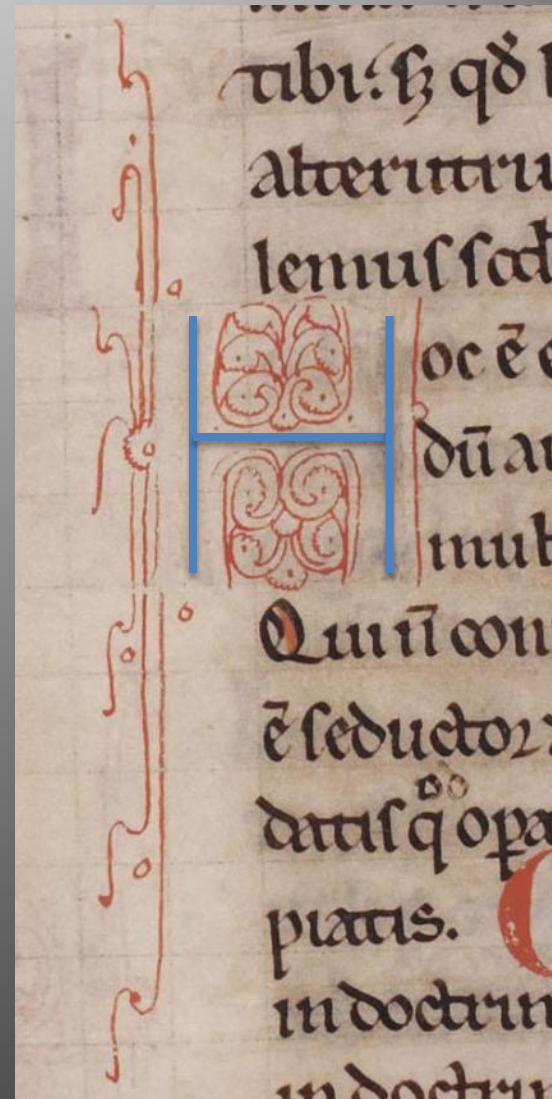 tibi: sꝫ qđ
alterutru
lemus scd
Hoc ē e
dū au
mult
Qui n̄ con
ē seductor
datis q̄ oꝑa
piatis.
in doctrin
in doctrin